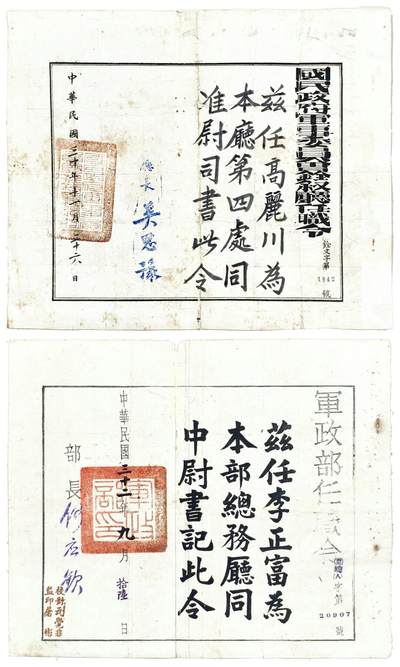 國民政府軍事委員會銓敘廳任職令
銓文字第1942號
茲任高麗川為
本廳第四處同
准尉司書此令
廳長 吳思豫
中華民國三十年十一月二十六日
軍政部任職令
字第20907號
茲任李正富為
本部總務廳同
中尉書記此令
部長 何應欽
中華民國三十二年九月拾陸日
軍政部印
校對劉覺非
監印屠彬